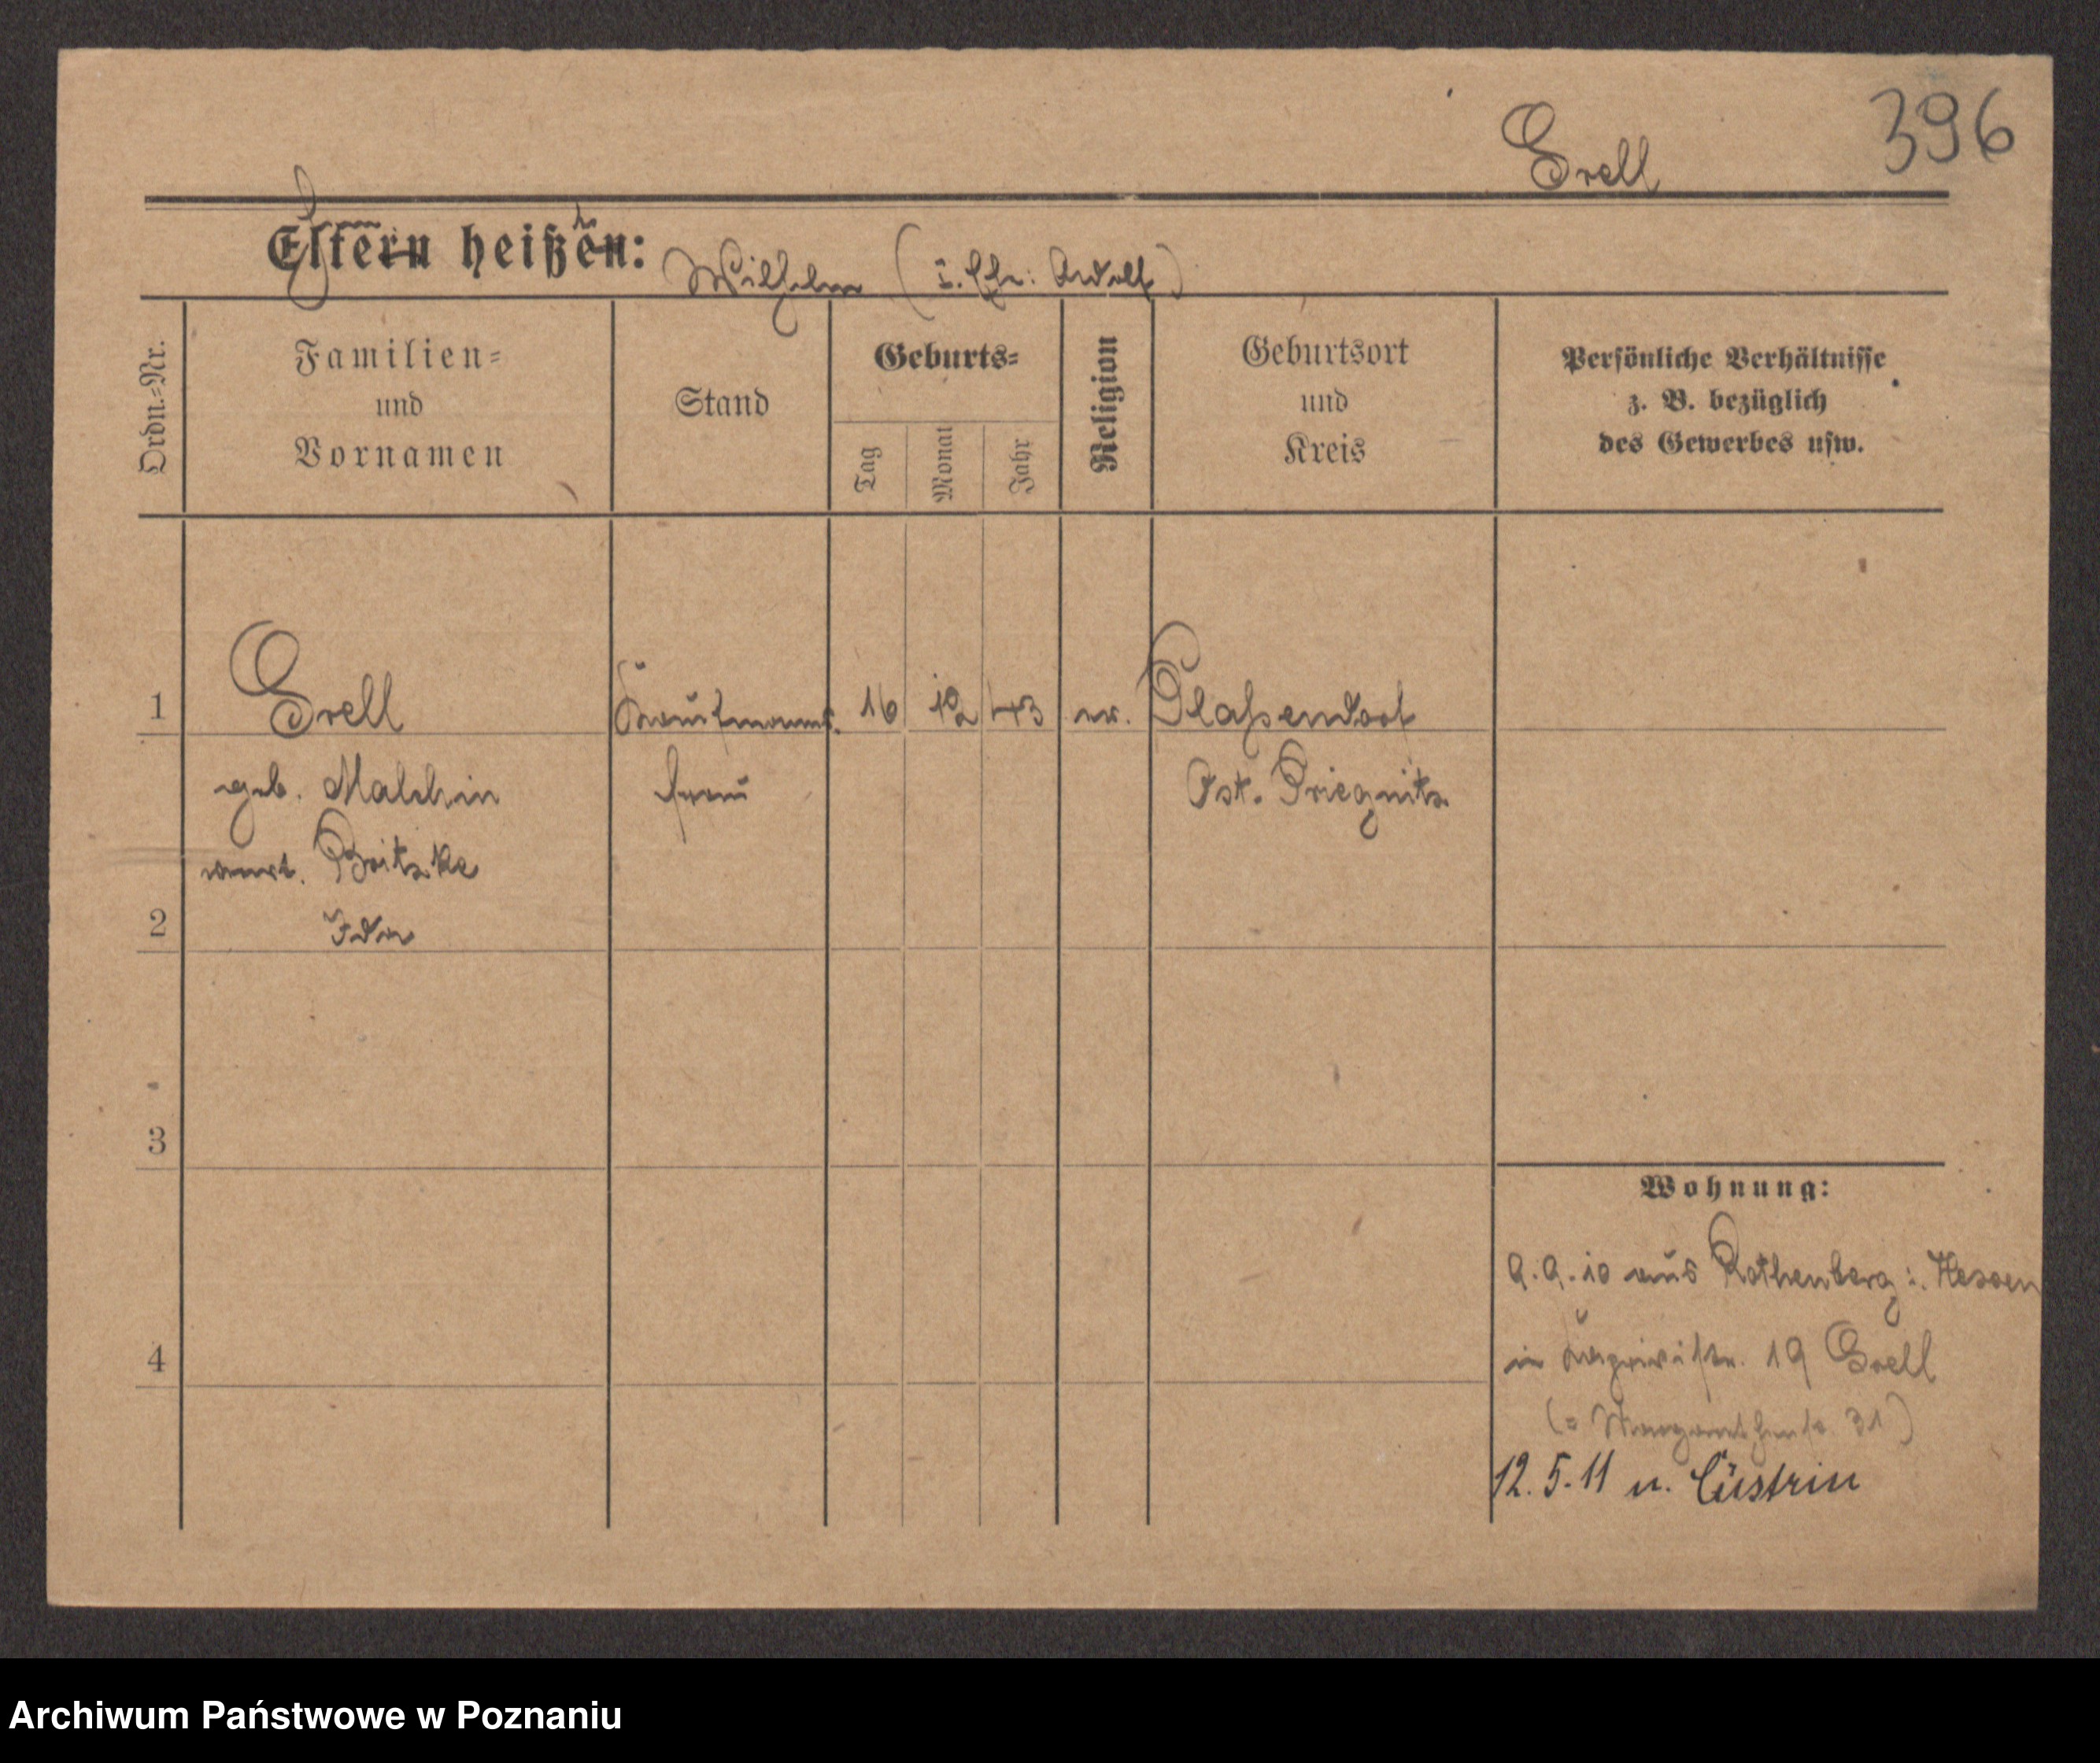 Grell
396
Eltern heißen:
Wilhelm (I. Ehe: Adolf)
Ordn.=Nr.
Familien=
und
Vornamen
Stand
Geburts=
Tag
Monat
Jahr
Religion
Geburtsort
und
Kreis
Persönliche Verhältnisse
z. B. bezüglich
des Gewerbes usw.
1
Grell
Kaufmanns
16
12
43
ev.
geb. Malchin
frau
Ost. Priegnitz
verw.
2
Ida
3
Wohnung:
9.9.10 aus Rothenberg i. Hessen
4
in 19 Grell
(= Margarethenstr 31)
12.5.11 n. Cüstrin
Archiwum Państwowe w Poznaniu